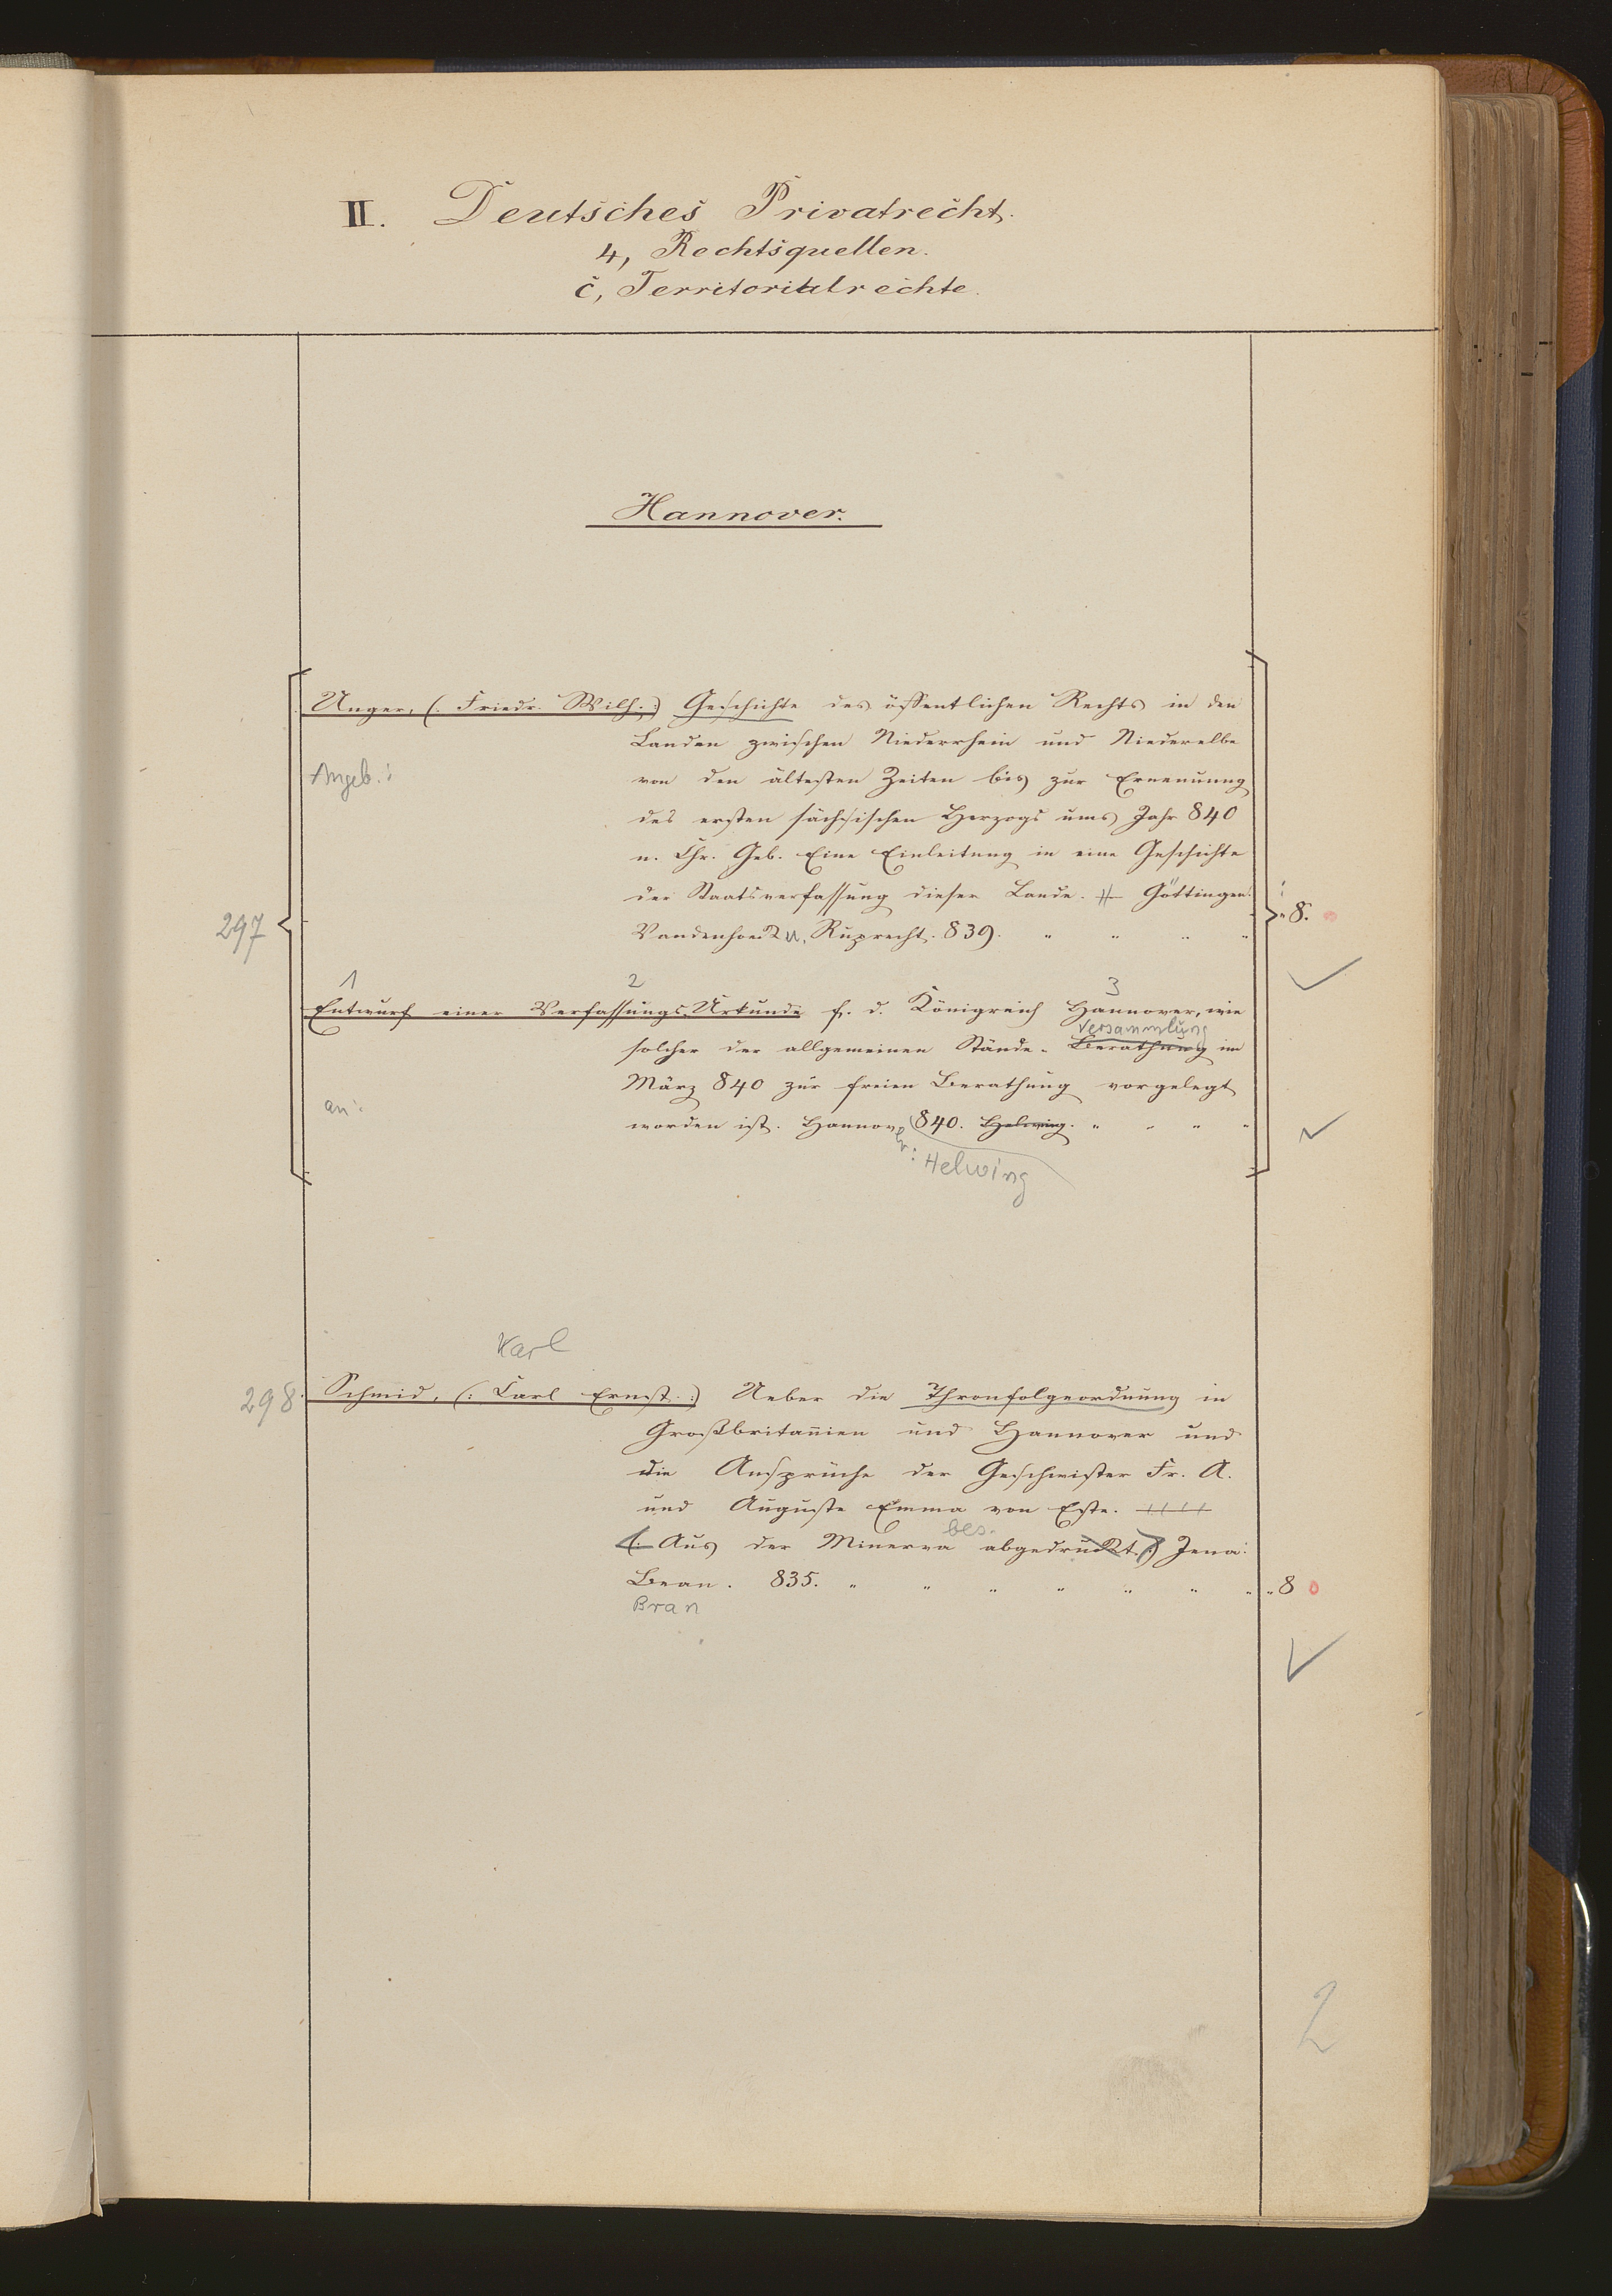 II. Deutsches Privatrecht.
4, Rechtsquellen.
c, Territorialrechte.
Hannover.
297
Unger, (: Friedr. Wilh. :) Geschichte des öffentlichen Rechts in den
Landen zwischen Niederrhein und Niederelbe
Angeb.:
von den ältesten Zeiten bis zur Ernennung
des ersten sächsischen Herzogs ums Jahr 840
n. Chr. Geb. Eine Einleitung in eine Geschichte
der Staatsverfassung dieser Lande. Göttingen:
Vandenhoeck u. Ruprecht. 839. " " " " " 8.
1 2 3
Entwurf einer Verfassungs-Urkunde f. d. Königreich Hannover, wie
Versammlung
solcher der allgemeinen Stände-Berathung im
März 840 zur freien Berathung vorgelegt
an:
worden ist. Hannover: 840. Helwing. " " " "
Helwing
Karl
298. Schmid, (: Carl Ernst. :) Ueber die Thronfolgeordnung in
Großbritannien und Hannover und
die Ansprüche der Geschwister Fr. A.
und Auguste Emma von Este.
bes.
(: Aus der Minerva abgedruckt. :) Jena:
Bran. 835. " " " " " " " " 8 0
Bran
2